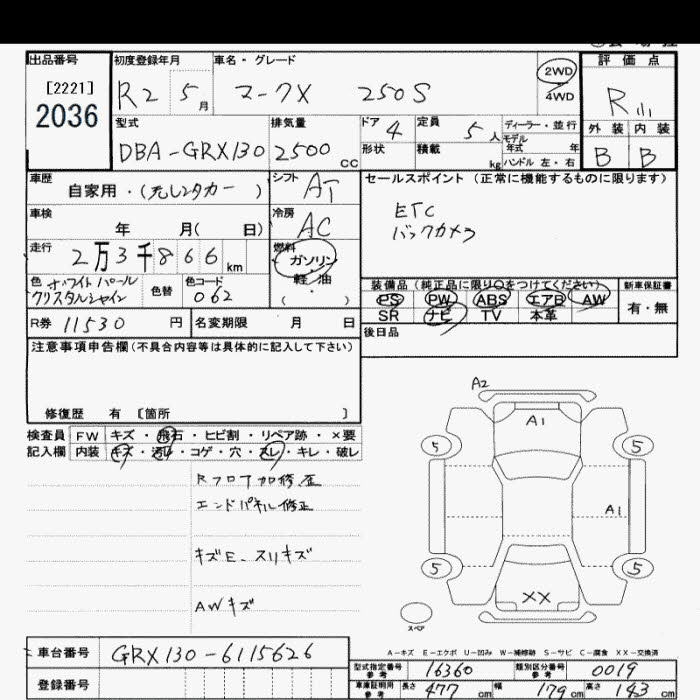 出品番号
[2221]
2036
初度登録年月
R2 5 月
車名・グレード
マークX 250S
2WD
4WD
評価点
R
外装 内装
B B
型式
DBA-GRX130
排気量
2500 cc
ドア 4
定員 5 人
形状
積載 kg
ディーラー・並行
モデル
年式 年
ハンドル 左・右
車歴
自家用・(元レンタカー )
シフト AT
車検
年 月( 日)
冷房 AC
走行
2万3千866 km
燃料
ガソリン
軽・油
( ・ )
色 ホワイトパール
クリスタルシャイン
色替
色コード
062
R券 11530 円
名変期限 月 日
セールスポイント (正常に機能するものに限ります)
ETC
バックカメラ
装備品(純正品に限り○をつけてください)
PS PW ABS エアB AW
SR ナビ TV 本革
新車保証書
有・無
後日品
注意事項申告欄(不具合内容等は具体的に記入して下さい)
修復歴 有 〔箇所 〕
検査員
記入欄
FW キズ・飛石・ヒビ割・リペア跡・×要
内装 キズ・汚れ・コゲ・穴・スレ・キレ・破レ
Rフロア加修歪
エンドパネル修正
キズE-スリキズ
AWキズ
A2
A1
5
5
A1
5
5
XX
スペア
A-キズ E-エクボ U-凹み W-補修跡 S-サビ C-腐食 XX-交換済
車台番号 GRX130-6115626
登録番号
型式指定番号
参考
16360
類別区分番号
参考
0019
車庫証明用
参考
長さ 477 cm
幅 179 cm
高さ 143 cm